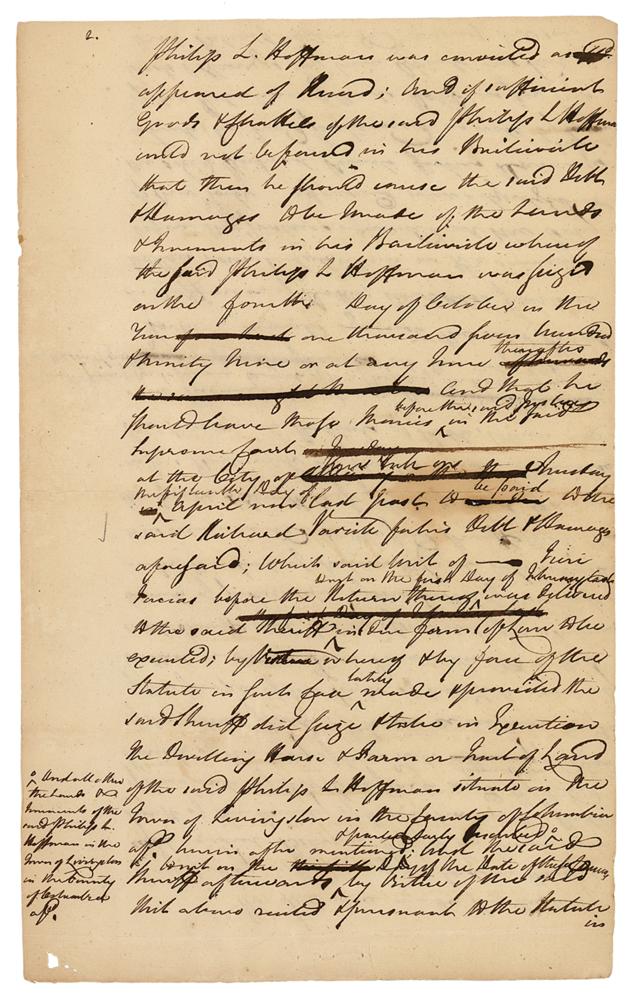 2.
Philip L. Hoffman was convicted as
appeared of Record; And if sufficient
Goods & Chattels of the said Philip L Hoffman
could not be found in his Bailiwick
that then he should cause the said Debt
& Damages to be made of the Lands
& Tenements in his Bailiwick whereof
the said Philip L Hoffman was seized
on the fourth Day of October in the
Year one thousand seven hundred
& ninety Nine or at any time thereafter
And that he
should have those Monies before the said Justices in the said
Supreme Court
at the City of New York on Tuesday
the fifteenth Day of April now last past to be said to the
said Richard Varick for his Debt & Damages
aforesaid; Which said Writ of Fieri
Facias before the Return thereof and on the first Day of February last was delivered
to the said Sheriff in due form of Law to be
executed; by Virtue whereof & by force of the
Statute in such case lately made & provided the
said Sheriff did seize & take in Execution
the Dwelling House & Farm or Tract of Land
of the said Philip L Hoffman situate in the
Town of Livingston in the County of Columbia
afd. herein after mentioned & particularly described And the said
Sheriff afterwards to wit on the Day of the Date of these by Virtue of the said
Writ above recited & pursuant to the Statute
in
And all other
the Lands &
Tenements of the
said Philip L.
Hoffman in the
Town of Livingston
in the County
of Columbia
afd.